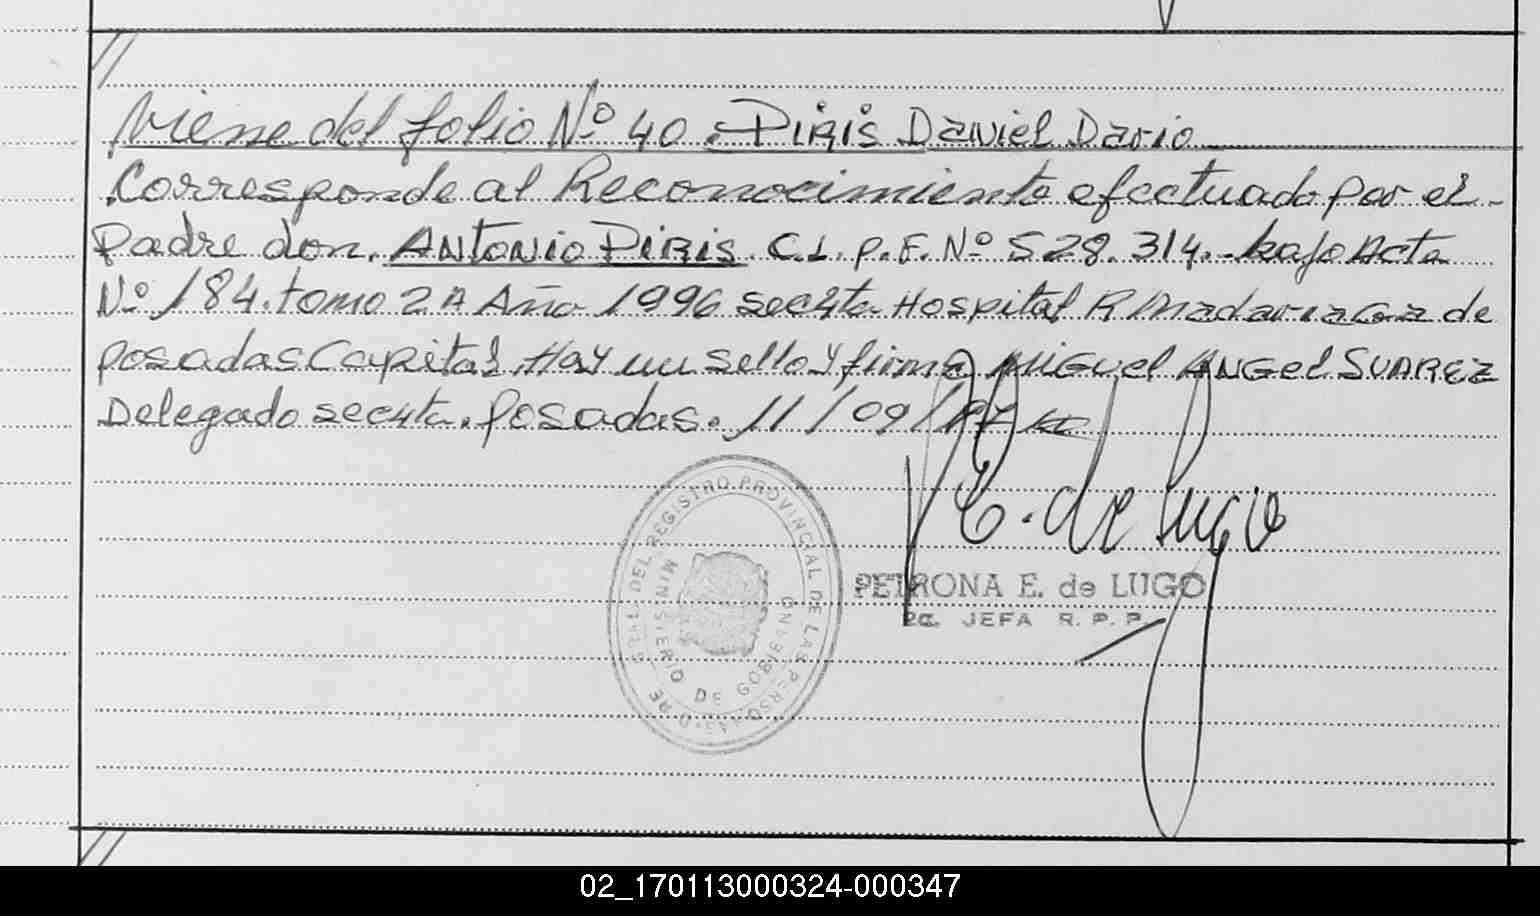 Viene del folio Nº 40. PIRIS Daniel Dario
Corresponde al Reconocimiento efectuado por el
Padre don. ANTONIO PIRIS. C.I. P.F. Nº 528.314. bajo Acta
Nº 184. tomo 2A Año 1996 sección Hospital R Madariaga de
posadas Capital. Hay un sello y firma MIGUEL ANGEL SUAREZ
Delegado. Posadas. 11/09/97
E. de Lugo
PETRONA E. de LUGO
2a. JEFA R. P. P.
GRAL. DEL REGISTRO PROVINCIAL DE LAS PERSONAS
MINISTERIO DE GOBIERNO
02_170113000324-000347